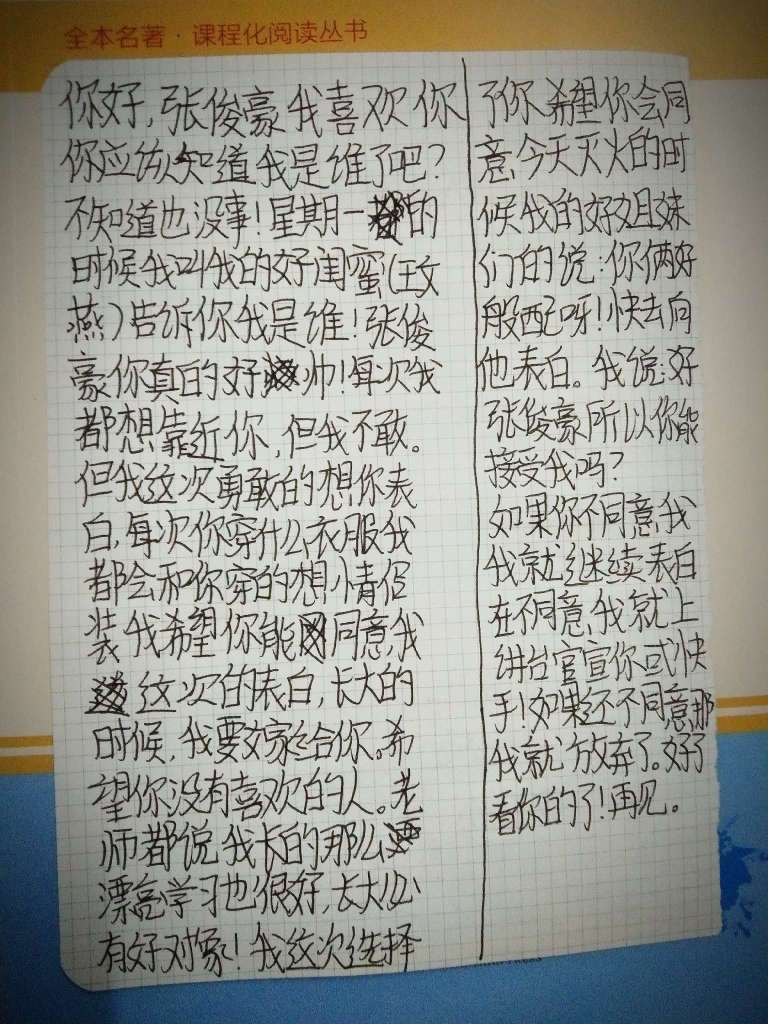 全本名著·课程化阅读丛书
你好,张俊豪我喜欢你
你应该知道我是谁了吧?
不知道也没事!星期一的
时候我叫我的好闺蜜(王玟
燕)告诉你我是谁!张俊
豪你真的好帅!每次我
都想靠近你,但我不敢。
但我这次勇敢的想你表
白,每次你穿什么衣服我
都会和你穿的想情侣
装我希望你能同意,我
这次的表白,长大的
时候,我要嫁给你。希
望你没有喜欢的人。老
师都说我长的那么
漂亮学习也很好,长大必
有好对象!我这次选择
了你希望你会同
意,今天灭火的时
候我的好姐妹
们的说:你俩好
般配呀!快去向
他表白。我说:好
张俊豪所以你能
接受我吗?
如果你不同意,我
我就继续表白
在不同意,我就上
讲台官宣你或快
手!如果还不同意那
我就放弃了。好了
看你的了!再见。